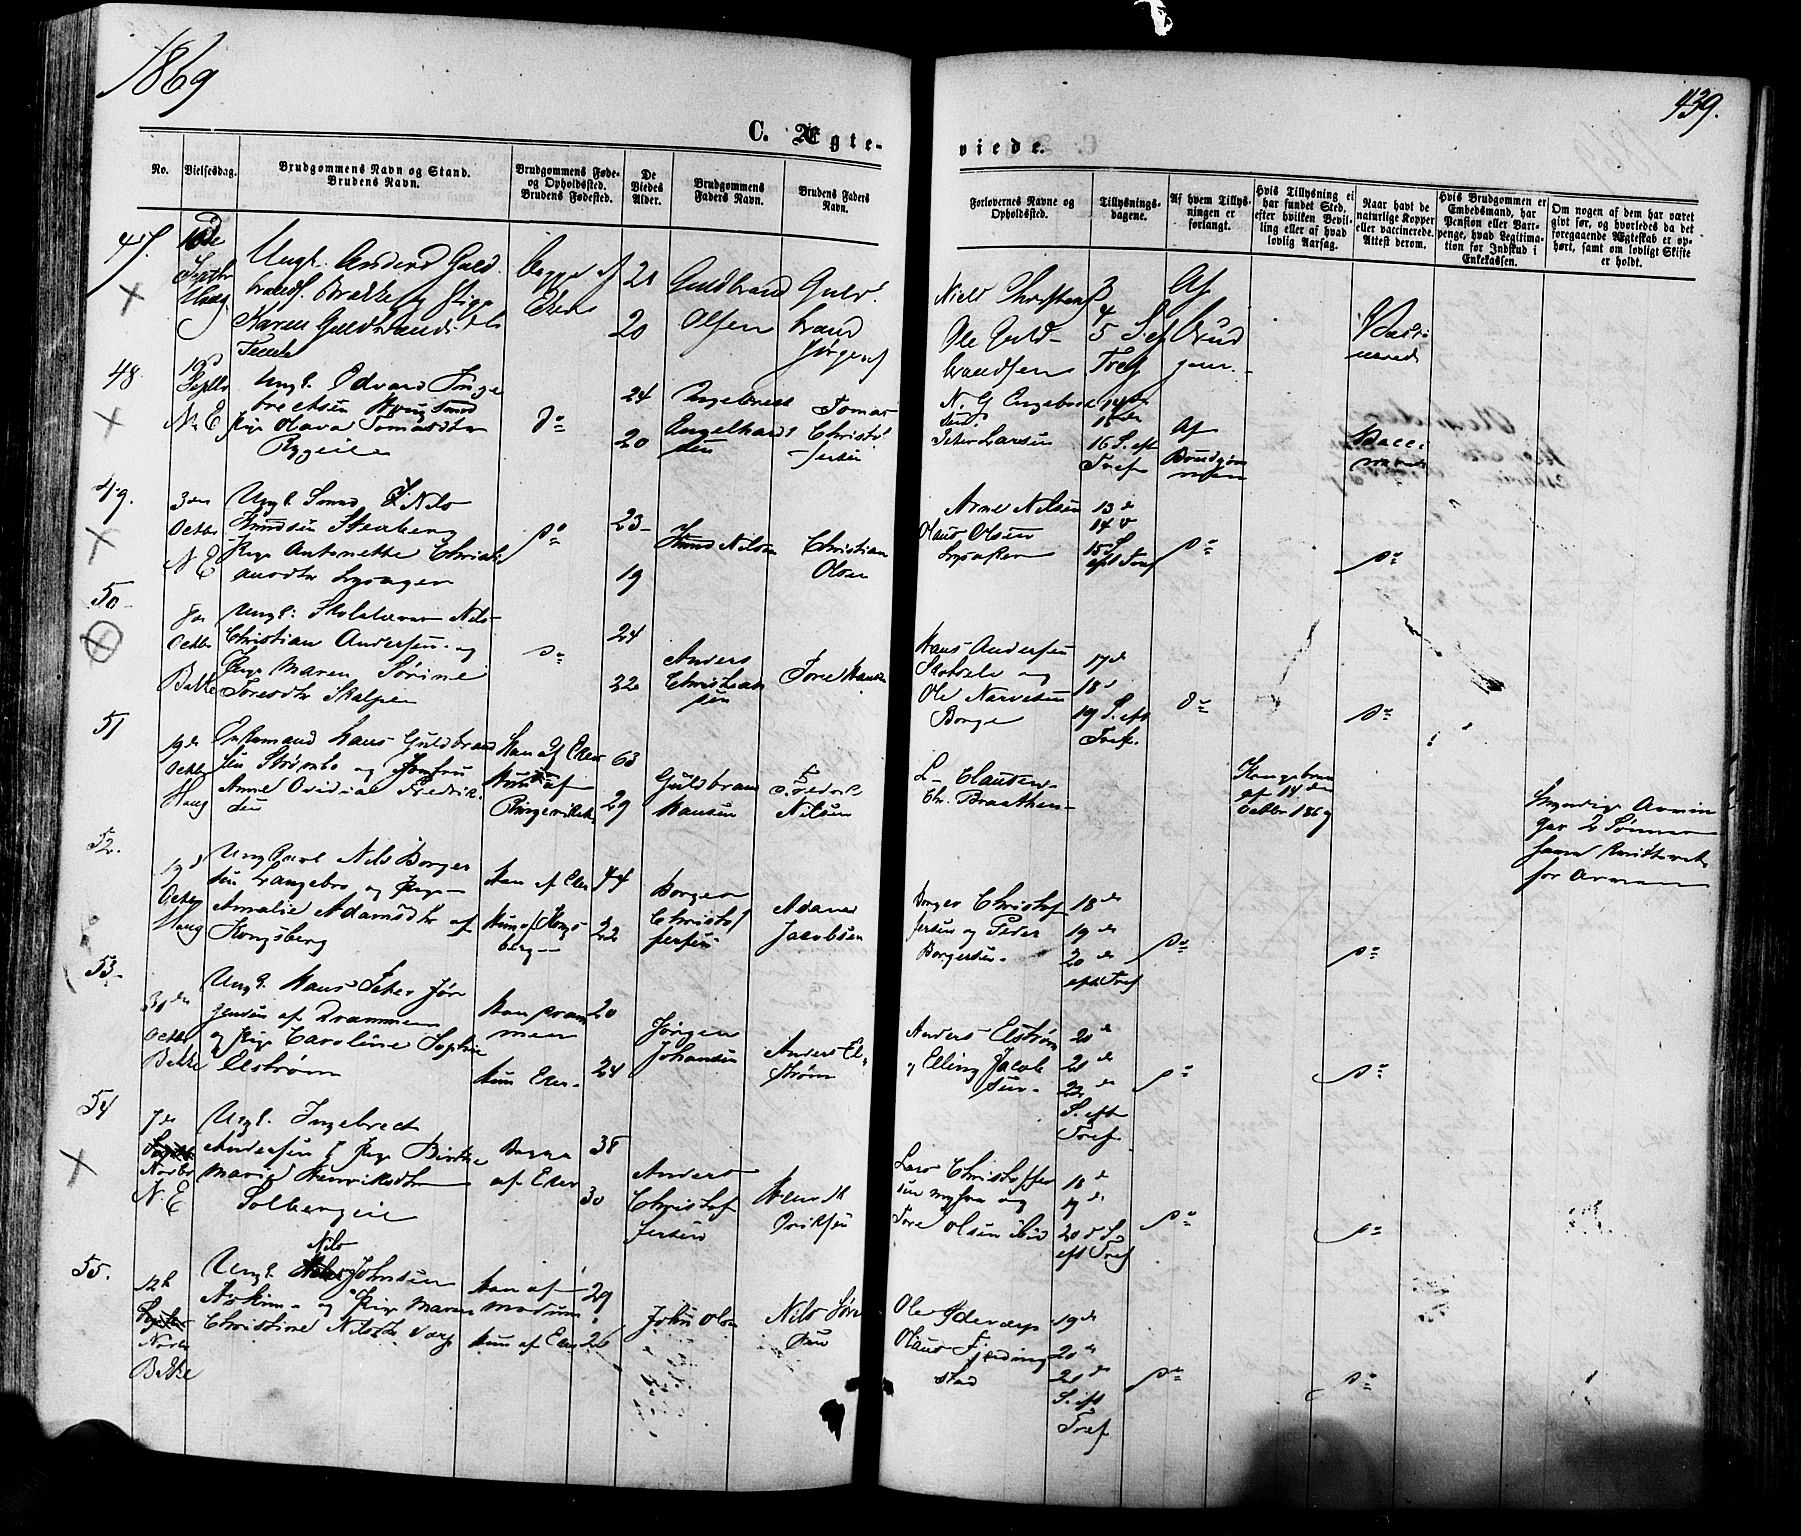 1869
439.
C. Ægte-
viede.
No.
Vielsesdag.
Brudgommens Navn og Stand.
Brudens Navn.
Brudgommens Føde-
og Opholdssted.
Brudens Fødested.
De
Viedes
Alder.
Brudgommens
Faders Navn.
Brudens Faders
Navn.
Forlovernes Navne og
Opholdssted.
Tillysnings-
dagene.
Af hvem Tillys-
ningen er
forlangt.
Hvis Tillysning ei
har fundet Sted,
efter hvilken Bevil-
ling eller af hvad
lovlig Aarsag.
Naar havt de
naturlige Kopper
eller vaccinerede.
Attest derom.
Hvis Brudgommen er
Embedsmand, har
Pension eller Vart-
penge, hvad Legitima-
tion for Indskud i
Enkekassen.
Om nogen af dem har været
givt før, og hvorledes da det
foregaaende Ægteskab er op-
hørt, samt om lovligt Skifte
er holdt.
47.
Septbr
Haug
Ungk. Anders Guld
brands. Bakke og Pige
Karen Guldbrandsdtr
Begge af
Eker
28
20
Guldbrand
Olsen
Guld
brand
Jørgens
Niels
Ole Guld-
brandsen
3
4
5 S. ef
Tref
Af
Brud
gom
Vacci
nerede
48
19
Septbr
N. E
Ungk. Edvard Inge
brechtsen
Pige Olava Tomasdtr
Ryggeie
do
24
20
Ingebrecht
Engelhardt
sen
Tomas
Christo
fersen
N. G Engebret
sen
Peter Larsen
16 S. eft
Tref
Af
Brudgom
men
Vacci
nerede
49.
3die
Octbr
N E
Ungk. Smed Nils
Knudsen Stenberg
Pige Antonette Christi
ansdtr Lysager
do
23
19
Knud Nilsen
Christian
Olsen
Arne Nilsen
Olaus Olsen
Lysaker
13de
14d
15 S.
eft Tref
do
do
50
8de
Octbr
Bakke
Ungk. Skolelærer Nils
Christian Andersen og
Pige Maren Sørine
Toresdtr Skalpen
do
24
22
Anders
Christian
sen
Tore Hansen
Hans Andersen
og
Ole Narvesen
Borge
17de
18d
19 S. eft
Tref.
do
do
51
19de
Octbr
Haug
Enkemand Hans Guldbrand
sen Strømbo og Jomfru
Anne Ovidia Fredrik
sen
Han af Eker
Hun af
Ringerike
63
29
Guldbrand
Hansen
Fredrik
Nilsen
L. Clausen
Chr. Braathen
Kongebrev
af 14de
Octbr 1869
2 Sønner
for Arven
52.
19d
Octbr
Haug
Ungkarl Nils Borger
sen Langebro og Pige
Amalie Adamsdtr af
Kongsberg
Han af Eker
Hun af Kongs
berg
44
22
Borger
Christof
fersen
Adam
Jacobsen
Borger Christof
fersen og Peder
Borgersen
18de
19de
20de
eft Tref
do
do
53.
30de
Octbr
Bakke
Ungk. Hans Peter Jør
gensen af Drammen
og Pige Caroline Sophie
Elstrøm
Han Dram
men
Hun Eker
20
24
Jørgen
Johansen
Anders El
strøm
Anders Elstrøm
Elling Jacob
sen
20d
21de
22de
S. eft
Tref.
do
do
54
7de
Novbr
N. E
Ungk. Ingebrecht
Andersen & Pige Birthe
Marie Henriksdtr
Solbergeie
Begge
af Eker
38
30
Anders
Christof
fersen
Henrik
Eriksen
Lars Christoffer
sen Myhra og
Tore Olsen ibid
18d
19de
20d S
eft Tref
do
do
55.
12te
Novbr
Bakke
Nils
Ungk. Johnsen
Askim og Pige Maren
Christine Nilsdtr Varp
Han af
Modum
Hun af Eker
29
26
John Olsen
Nils Søren
sen
Ole
Olaus Fjerding
stad
19de
20d
21de
S. eft
Tref
do
do